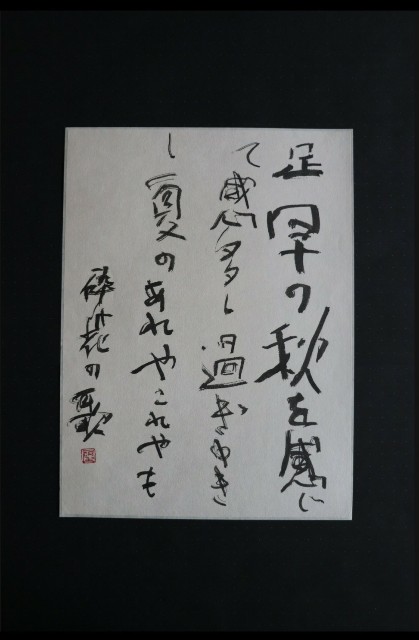 足早の秋を感じ
て感多し過ぎゆき
し夏のあれやこれやも
砕花の歌